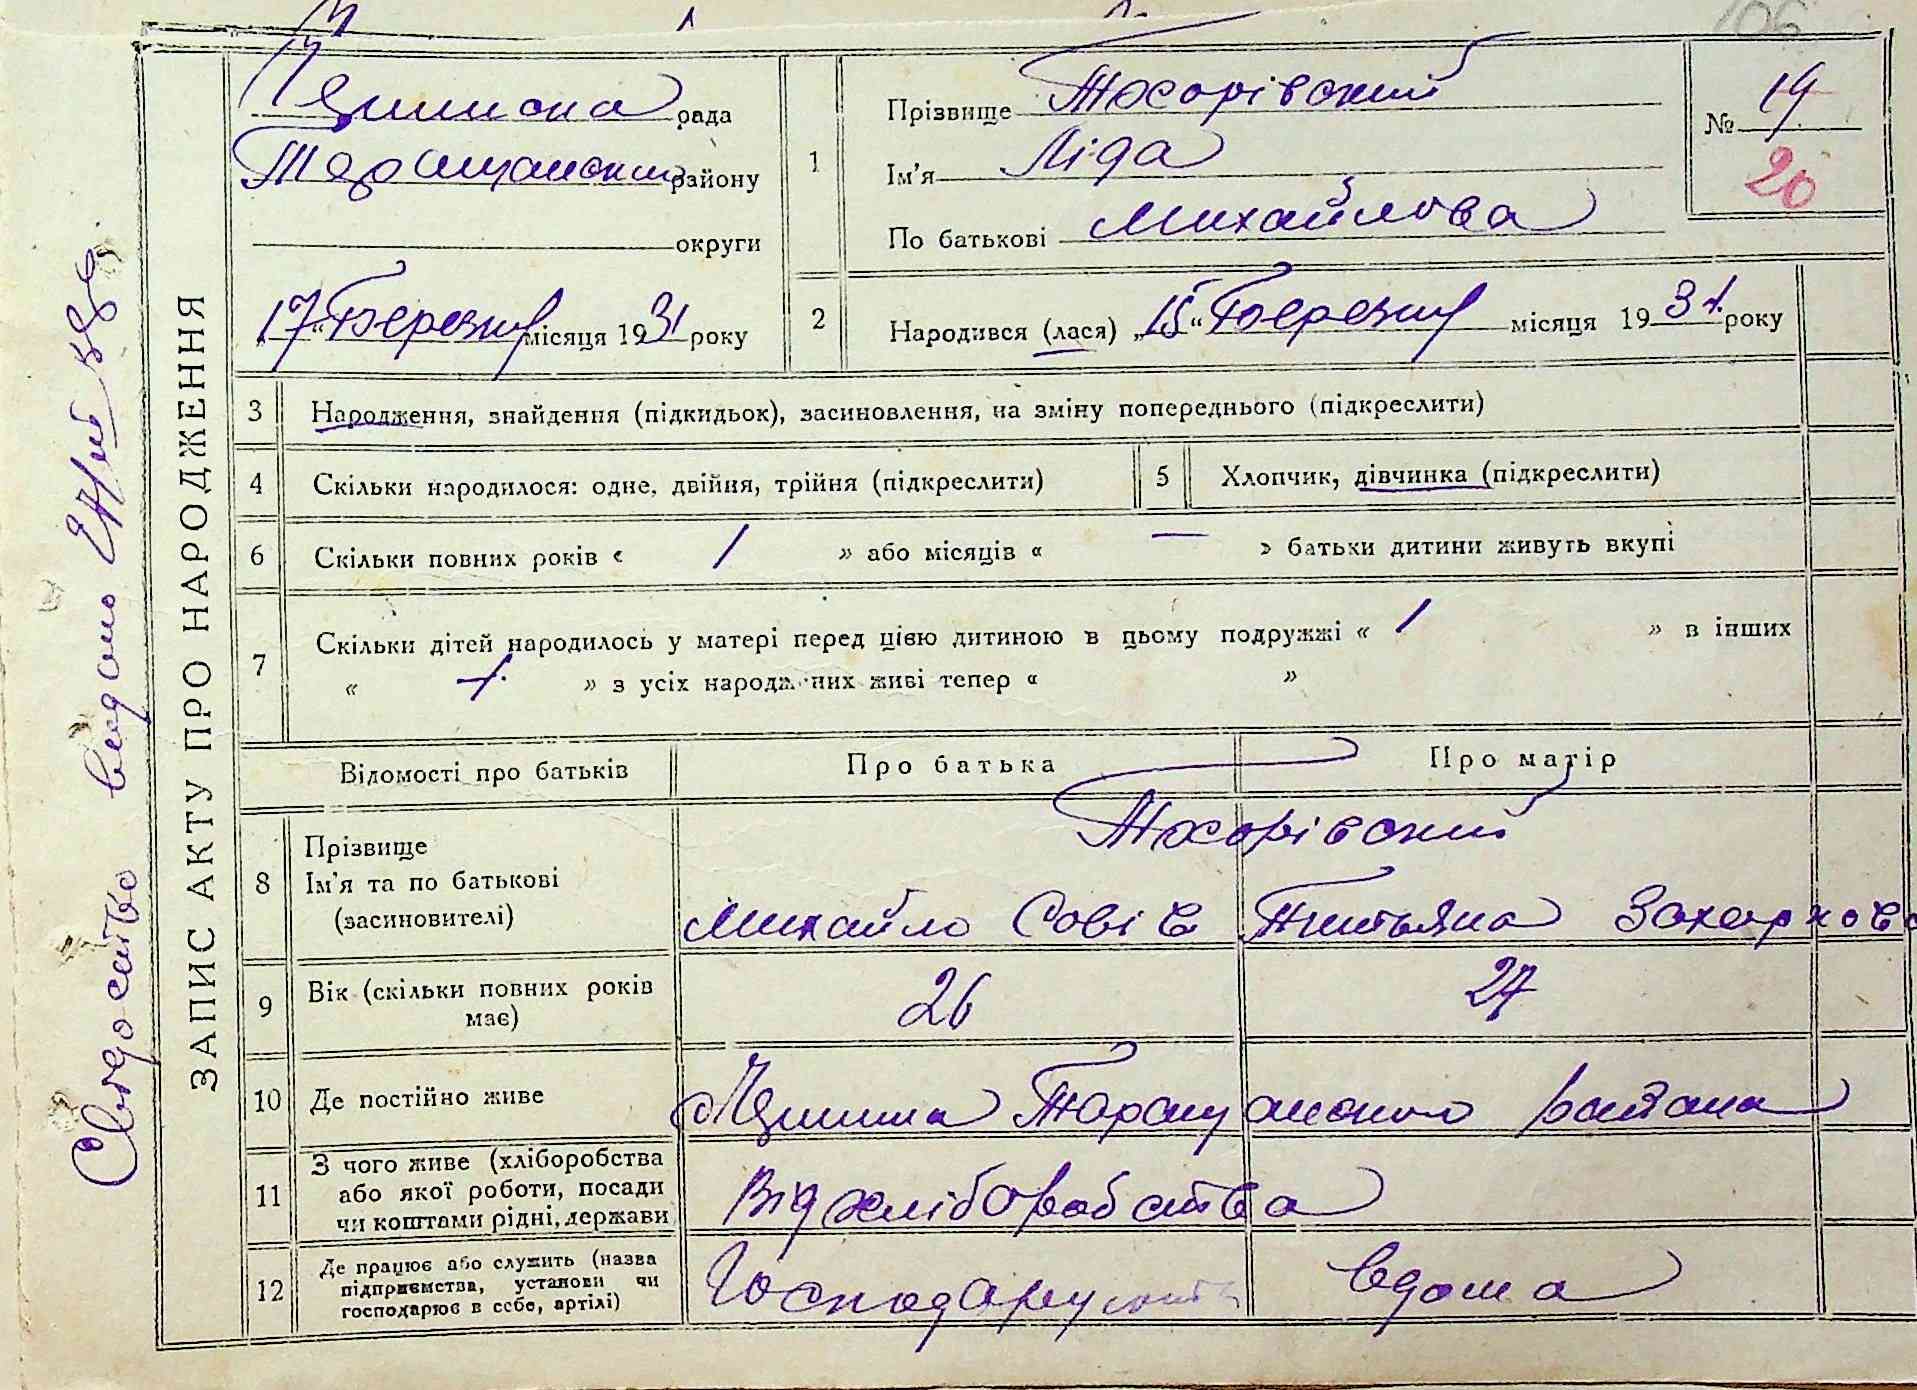 106
ЗАПИС АКТУ ПРО НАРОДЖЕННЯ
Свідоцтво видано
рада
Таращанский району
округи
„17“ Березня місяця 1931 року
1
Прізвище Тхорівский
Ім'я Ліда
По батькові Михайлова
№ 19
20
2
Народився (лася) „15“ Березня місяця 1931. року
3 Народження, знайдення (підкидьок), засиновлення, на зміну попереднього (підкреслити)
4 Скільки народилося: одне, двійня, трійня (підкреслити)
5 Хлопчик, дівчинка (підкреслити)
6 Скільки повних років « / » або місяців « — » батьки дитини живуть вкупі
7 Скільки дітей народилось у матері перед цією дитиною в цьому подружжі « / » в інших
« » з усіх народжених живі тепер « »
Відомості про батьків
Про батька
Про матір
8 Прізвище
Ім'я та по батькові
(засиновителі)
Михайло Совів
Титьяна Захаркова
9 Вік (скільки повних років
має)
26
27
10 Де постійно живе
Таращанского района
11 З чого живе (хліборобства
або якої роботи, посади
чи коштами рідні, держави
Від хліборобства
12 Де працює або служить (назва
підприємства, установи чи
господарює в себе, артілі)
Господарують вдома